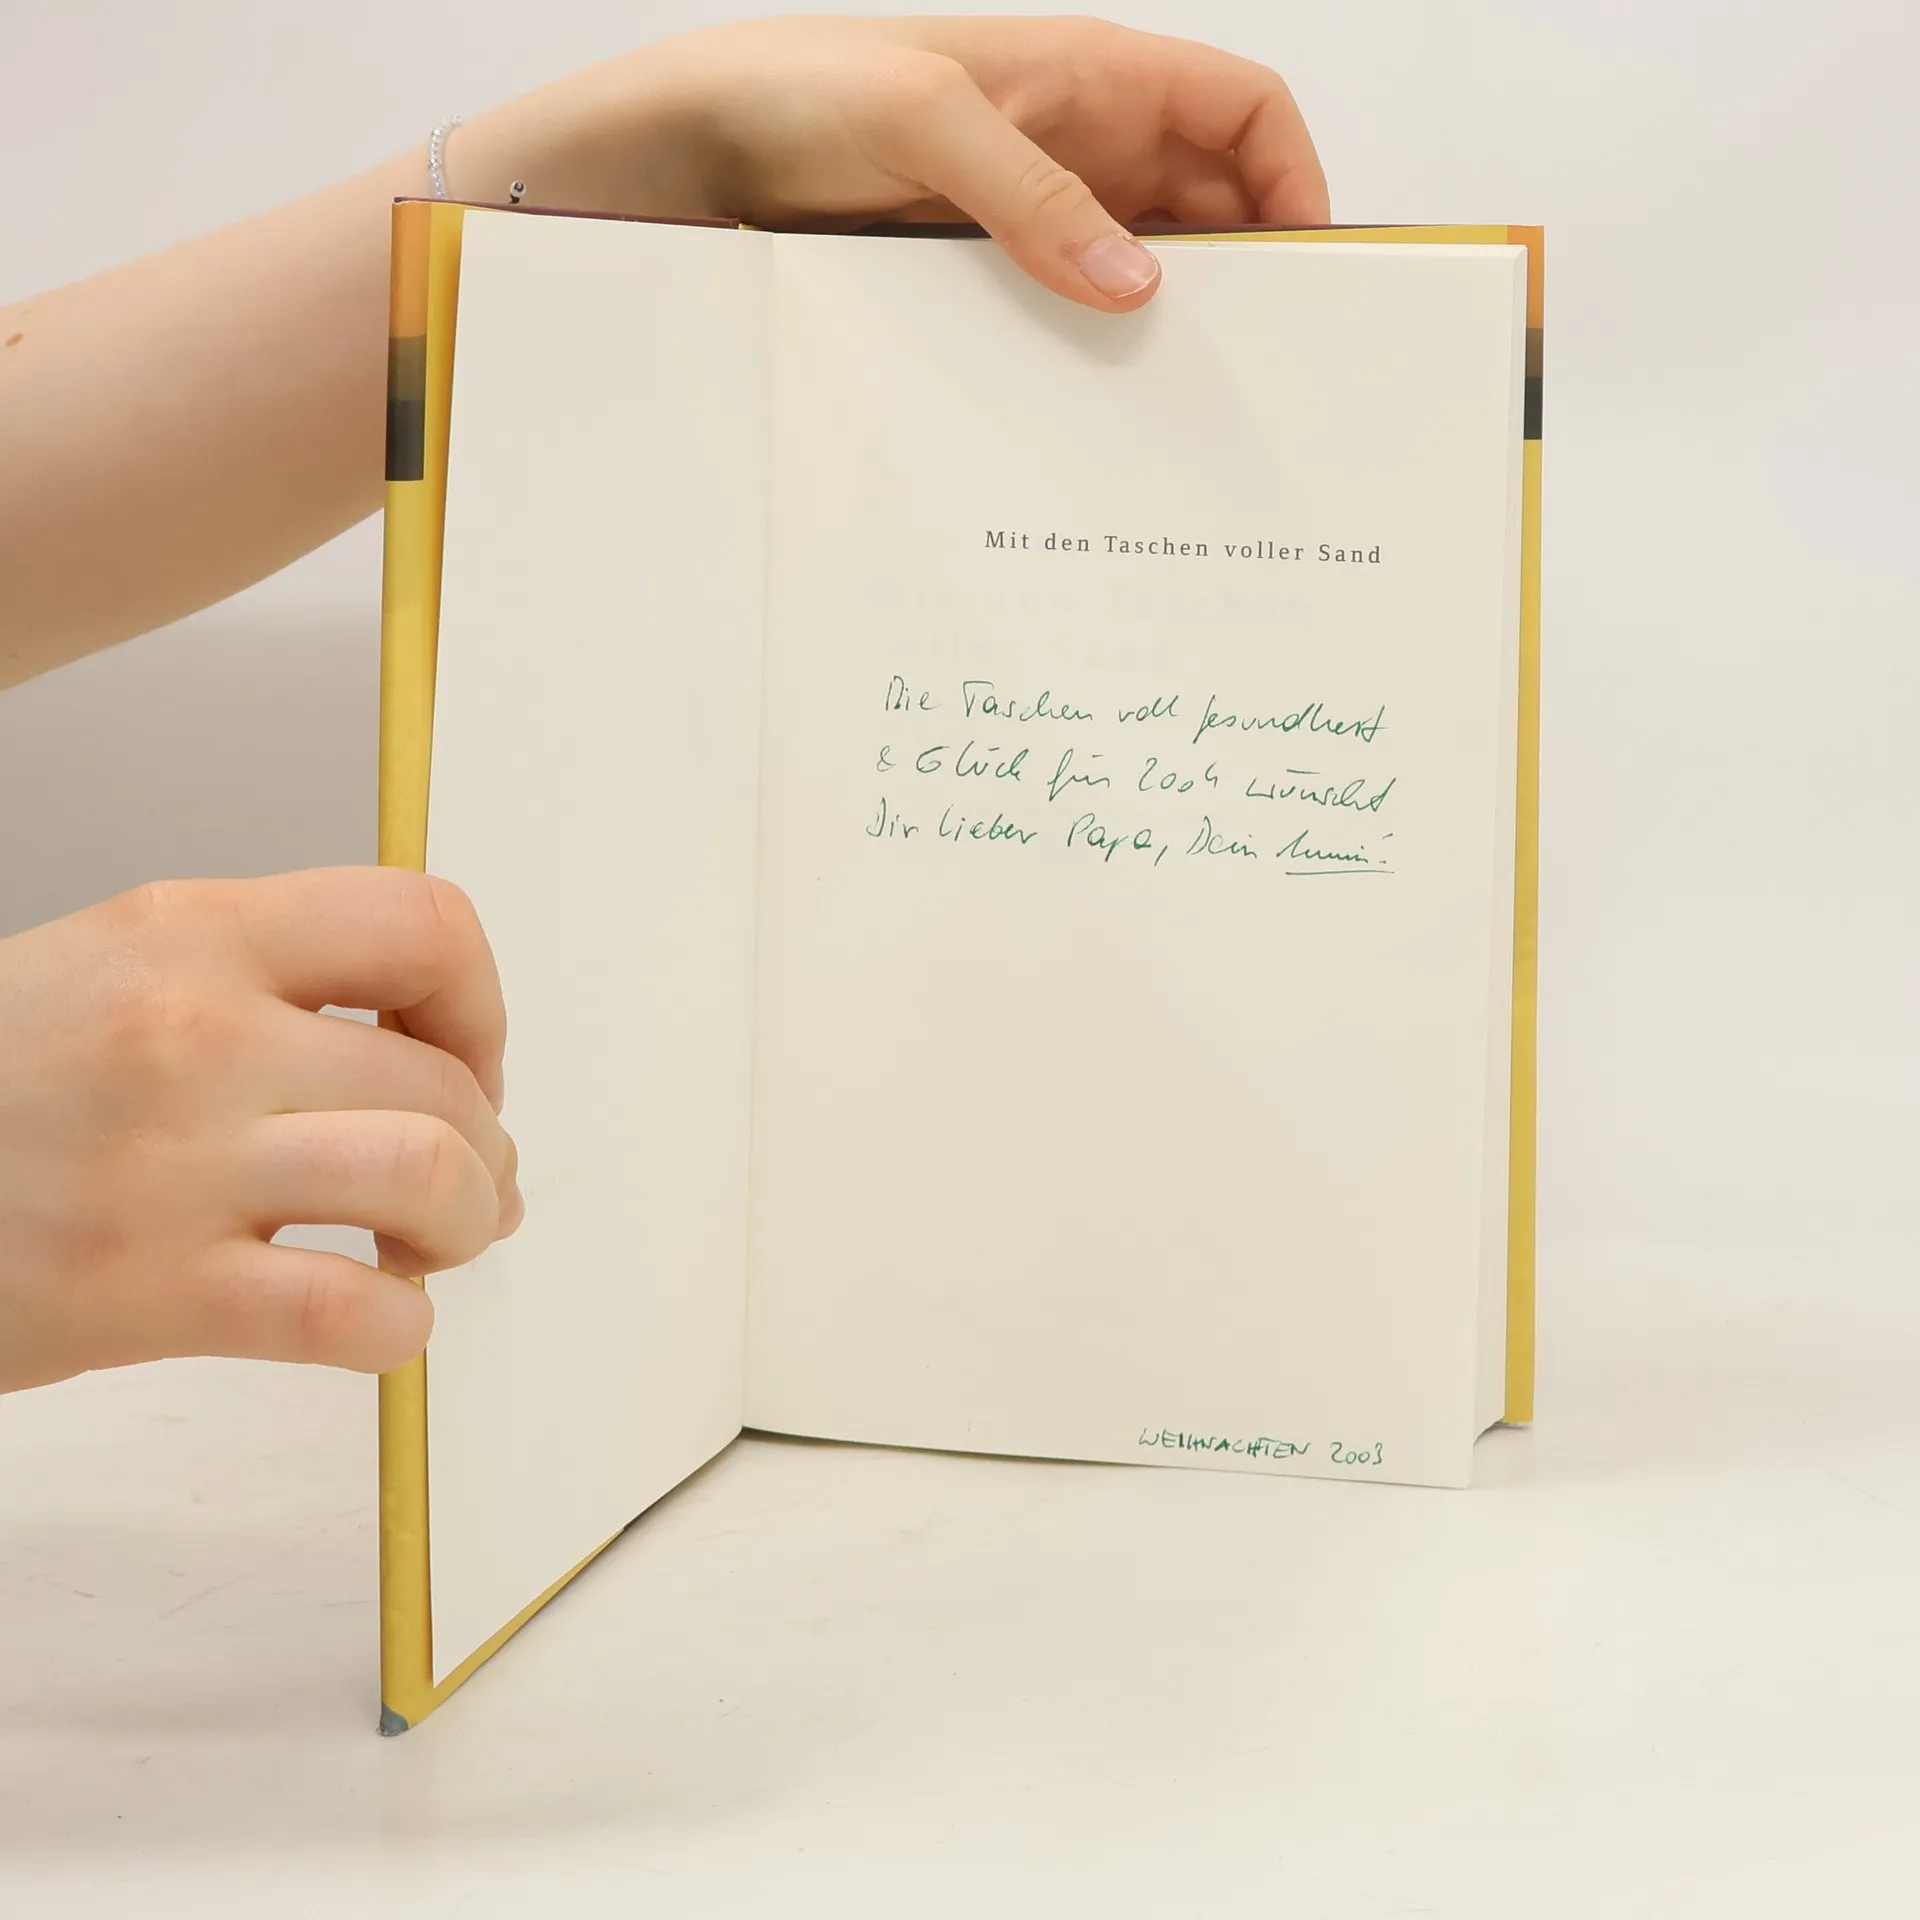 Mit den Taschen voller Sand
Die Taschen voll Gesundheit
& Glück für 2004 wünscht
Dir lieber Papa, Dein
WEIHNACHTEN 2003